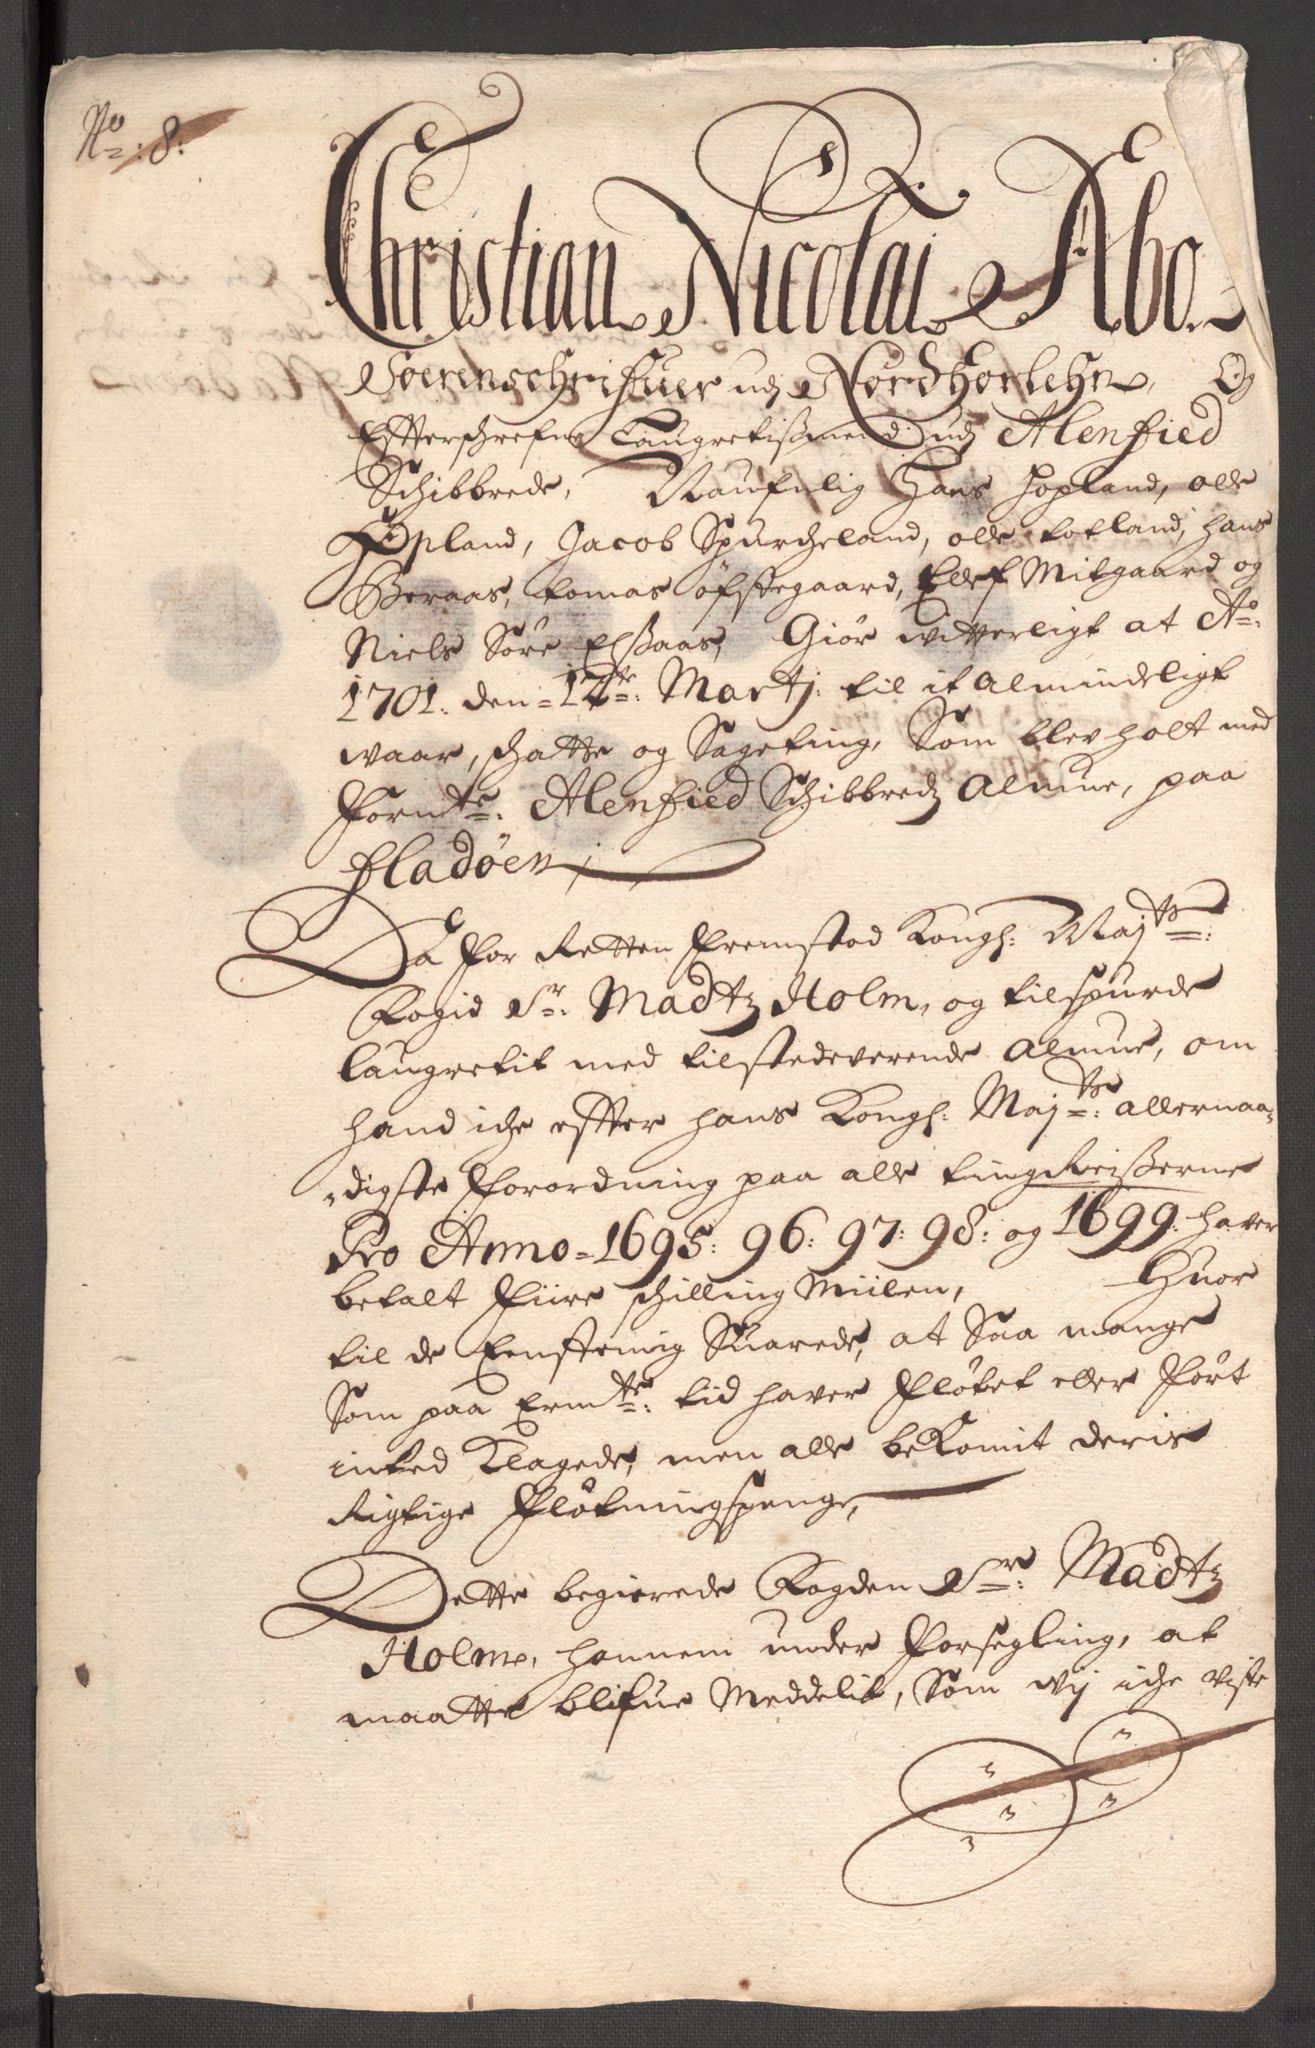 No: 8:
Christian Nicolai Abo.
Soerenschrifuer udj Nordhorlehn, Og
Effterschrefne Laugretismend udj Alenfied
Schibbrede, Naufnlig Hans Hopland, olle
Hopland, Jacob Spurcheland, olle totland, hans
Beraas, tomas öfstegaard, Ellef Mitgaard og
Niels Söre Elsaas, Giör witterligt at Ao:
1701. den 12te: Martj: til it almindeligt
waar, schatte og Sageting, Som blev holt med
formte: Alenfied Schibbredz Almue, paa
fladöen,
Da for Retten fremstod Kongl: Majts:
Fogid Sr: Madtz Holm, og tilspurde
laugretit med tilstedeverende almue, om
hand iche effter hans Kongl: Majts: allernaa-
digste forordning paa alle tingReisserne
Pro Anno 1695: 96: 97: 98: og 1699: haver
betalt fiire schilling Miilen, Huor
til de Eenstemig Suarede, at Saa mange
Som paa Ermte: tid haver flötet eller fört
inted Klagede, men alle beKomit deris
Rigtige flötningspenge,
Dette begierede Fogden Sr: Madtz
Holm, hannem under forsegling, at
maatte blifue Meddelit, Som wij iche viste